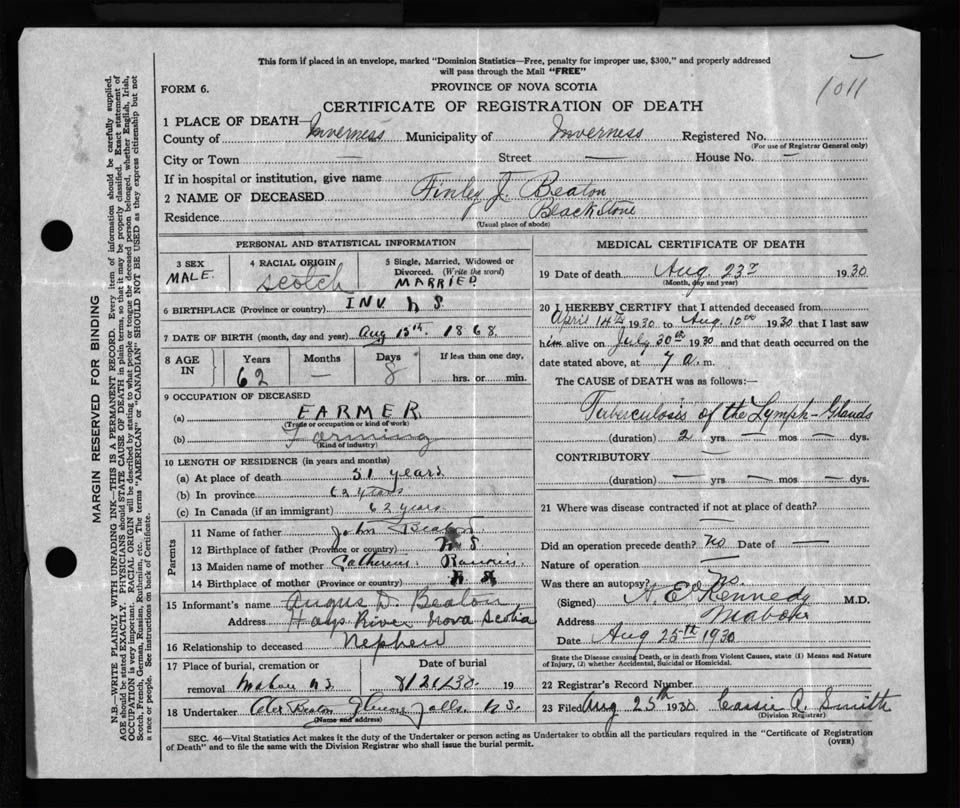 This form if placed in an envelope, marked "Dominion Statistics—Free, penalty for improper use, $300," and properly addressed
will pass through the Mail "FREE"
1011
FORM 6.
PROVINCE OF NOVA SCOTIA
CERTIFICATE OF REGISTRATION OF DEATH
1 PLACE OF DEATH—
County of Inverness Municipality of Inverness Registered No.
(For use of Registrar General only)
City or Town — Street — House No. —
If in hospital or institution, give name
2 NAME OF DECEASED Finley J. Beaton
Residence Blackstone
(Usual place of abode)
PERSONAL AND STATISTICAL INFORMATION
3 SEX
MALE.
4 RACIAL ORIGIN
Scotch
5 Single, Married, Widowed or
Divorced. (Write the word)
MARRIED
6 BIRTHPLACE (Province or country) INV. N S.
7 DATE OF BIRTH (month, day and year) Aug 15th. 1868.
8 AGE IN
Years Months Days If less than one day,
62 — 8 hrs. or min.
9 OCCUPATION OF DECEASED
(a) FARMER.
(Trade or occupation or kind of work)
(b) Farming
(Kind of industry)
10 LENGTH OF RESIDENCE (in years and months)
(a) At place of death 51 years
(b) In province 62 years
(c) In Canada (if an immigrant) 62 years
Parents
11 Name of father John Beaton
12 Birthplace of father (Province or country) N S
13 Maiden name of mother Catherine Rankin
14 Birthplace of mother (Province or country) N S
15 Informant's name Angus D. Beaton
Address Hays River Nova Scotia
16 Relationship to deceased Nephew
17 Place of burial, cremation or Date of burial
removal Mabou N.S. 8/21/30 19
18 Undertaker Alex Beaton Falls N.S.
(Name and address)
MEDICAL CERTIFICATE OF DEATH
19 Date of death Aug 23rd 1930
(Month, day and year)
20 I HEREBY CERTIFY that I attended deceased from
April 14th 1930 to Aug 10th 1930 that I last saw
him alive on July 30th 1930 and that death occurred on the
date stated above, at 7 a. m.
The CAUSE of DEATH was as follows:—
Tuberculosis of the Lymph-Glands
(duration) 2 yrs — mos — dys.
CONTRIBUTORY —
(duration) — yrs — mos — dys.
21 Where was disease contracted if not at place of death?
Did an operation precede death? No Date of —
Nature of operation —
Was there an autopsy? No.
(Signed) A. E. Kennedy M.D.
Address Mabou
Date Aug 25th 1930
State the Disease causing Death, or in death from Violent Causes, state (1) Means and Nature
of Injury, (2) whether Accidental, Suicidal or Homicidal.
22 Registrar's Record Number
23 Filed Aug 25th 1930 Cassie A. Smith
(Division Registrar)
SEC. 46—Vital Statistics Act makes it the duty of the Undertaker or person acting as Undertaker to obtain all the particulars required in the "Certificate of Registration
of Death" and to file the same with the Division Registrar who shall issue the burial permit.
(OVER)
MARGIN RESERVED FOR BINDING
N.B.—WRITE PLAINLY WITH UNFADING INK—THIS IS A PERMANENT RECORD. Every item of information should be carefully supplied.
AGE should be stated EXACTLY. PHYSICIANS should STATE CAUSE OF DEATH in plain terms, so that it may be properly classified. Exact statement of
OCCUPATION is very important. RACIAL ORIGIN will be described by stating to what people or tongue the deceased person belonged, whether English, Irish,
Scotch, French, German, Russian, Ruthenian, etc. The terms "AMERICAN" or "CANADIAN" SHOULD NOT BE USED as they express citizenship but not
a race or people. See instructions on back of Certificate.